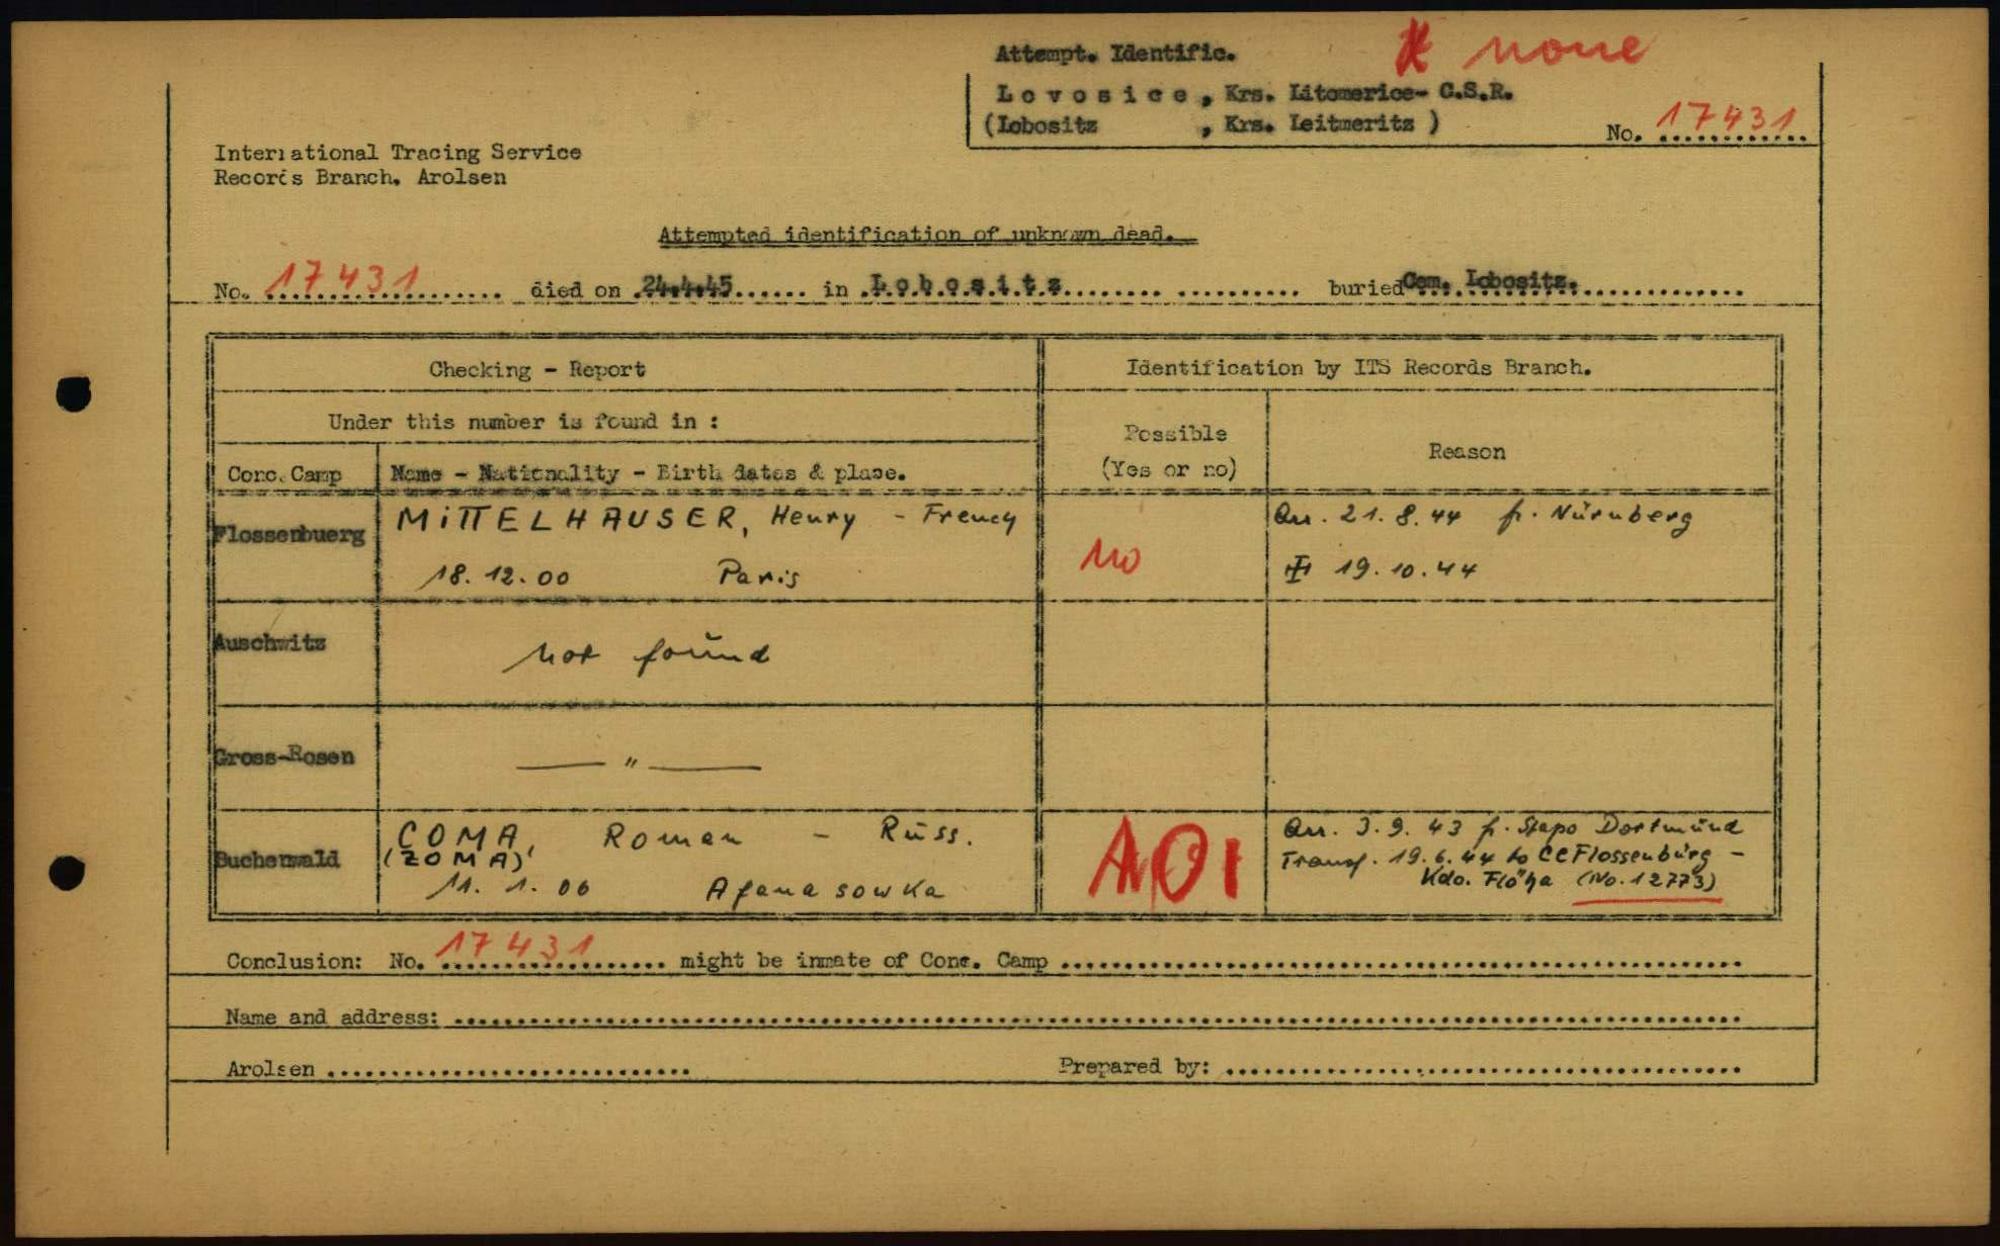 Attempt. Identific. none
L o v o s i c e , Krs. Litomerice- C.S.R.
(Lobositz , Krs. Leitmeritz )
No. 17431
International Tracing Service
Records Branch. Arolsen
Attempted identification of unknown dead.
No. 17431 died on 24.4.45 in L.o.b.o.s.i.t.z buried Cem. Lobositz.
Checking - Report
Identification by ITS Records Branch.
Under this number is found in :
Possible
(Yes or no)
Reason
Conc. Camp
Name - Nationality - Birth dates & place.
Flossenbuerg
MITTELHAUSER, Henry - French
18.12.00 Paris
no
Arr. 21.8.44 fr. Nürnberg
19.10.44
Auschwitz
not found
Gross-Rosen
—— " ——
Buchenwald
COMA, Roman - Russ.
(ZOMA)
11. 1. 06 Afanasowka
Arr. 3.9.43 fr. Stapo Dortmund
Transf. 19.6.44 to CC Flossenbürg -
Kdo. Flöha (No. 12773)
Conclusion: No. 17431 might be inmate of Conc. Camp
Name and address:
Arolsen
Prepared by: